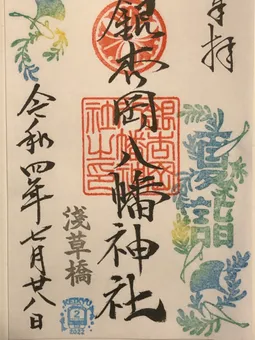 奉拝
夏詣
銀杏岡八幡神社
淺草橋
令和四年七月廿八日
KEIKYU
2
2022